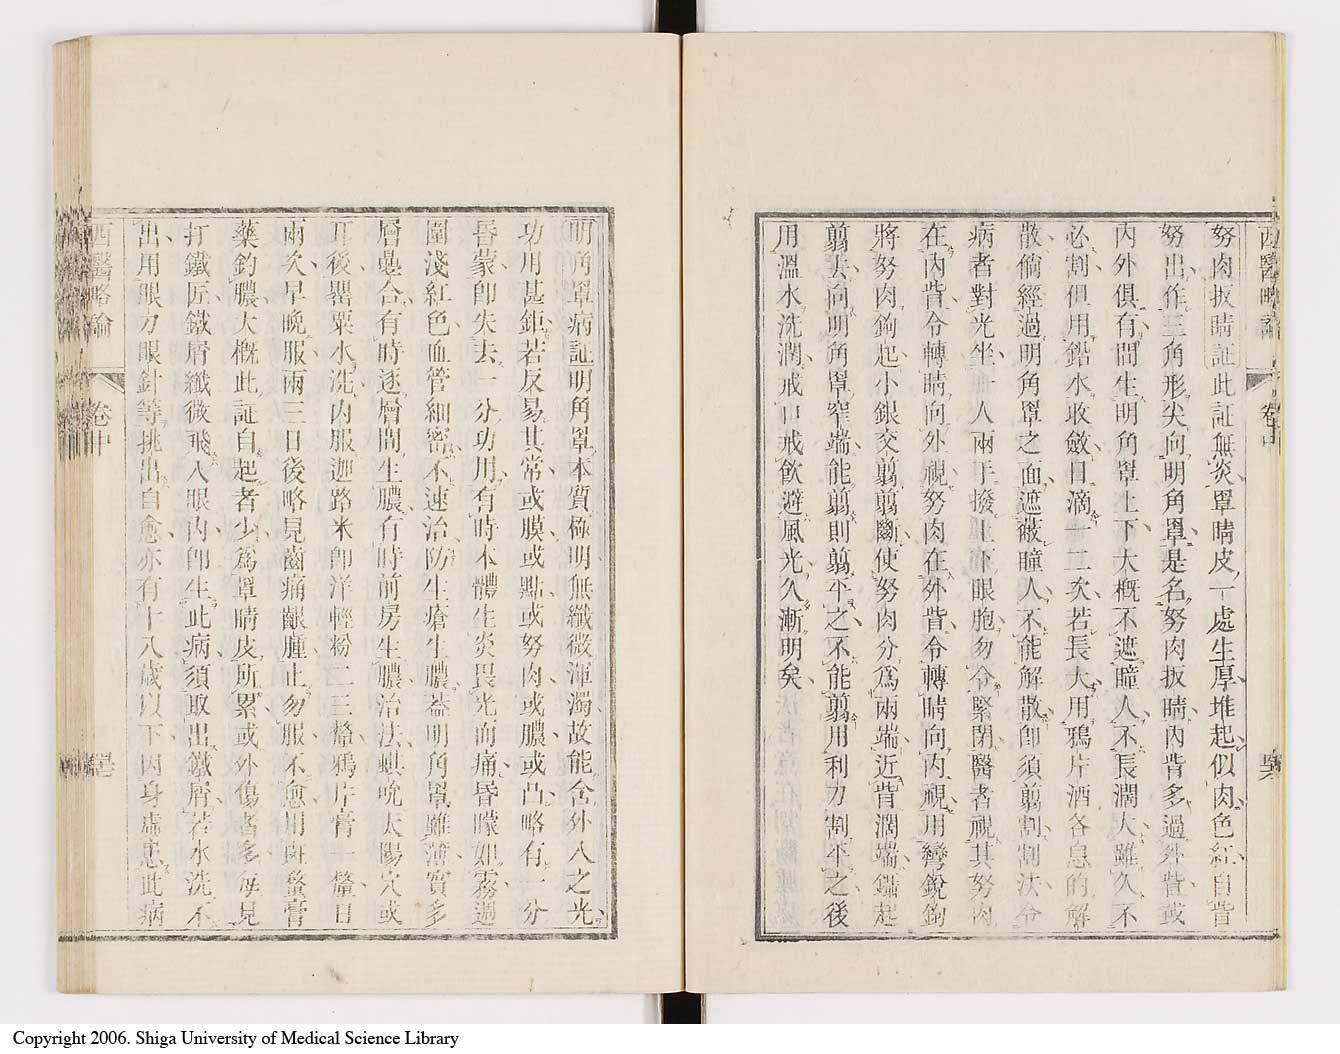 努肉扳睛証此証無炎罩睛皮一處生厚堆起似肉色紅自眥
努出作三角形尖向明角罩是名努肉扳睛內眥多過外眥或
內外俱有間生明角罩上下大概不遮瞳人不長濶大雖久不
必割俱用鉛水收斂日滴一二次若長大用鴉片酒各息的解
散倘經過明角罩之面遮蔽瞳人不能解散卽須剪割割法令
病者對光坐一人兩手撥上下眼胞勿令緊閉醫者視其努肉
在內眥令轉睛向外視努肉在外眥令轉睛向內視用彎銳鉤
將努肉鉤起小銀交剪剪斷使努肉分爲兩端近眥濶端鑷起
剪去向明角罩窄端能剪則剪平之不能剪用利刀割平之後
用溫水洗潤戒口戒飲避風光久漸明矣
西醫略論
卷中
明角罩病証明角罩本質極明無纖微渾濁故能含外入之光
功用甚鉅若反易其常或膜或點或努肉或膿或凸略有一分
昏蒙卽失去一分功用有時本體生炎畏光而痛昏矇如霧週
圍淺紅色血管細密不速治防生瘡生膿蓋明角罩雖薄實多
層疊合有時逐層間生膿有時前房生膿治法蜞吮太陽穴或
耳後罌粟水洗內服迦路米卽洋輕粉二三釐鴉片膏一釐日
兩次早晚服兩三日後略見齒痛齦腫止勿服不愈用斑蝥膏
藥釣膿大概此証自起者少爲罩睛皮所累或外傷者多每見
打鐵匠鐵屑纖微飛入眼內卽生此病須取出鐵屑若水洗不
出用眼刀眼針等挑出自愈亦有十八歲以下因身虛患此病
西醫略論
卷中
Copyright 2006. Shiga University of Medical Science Library